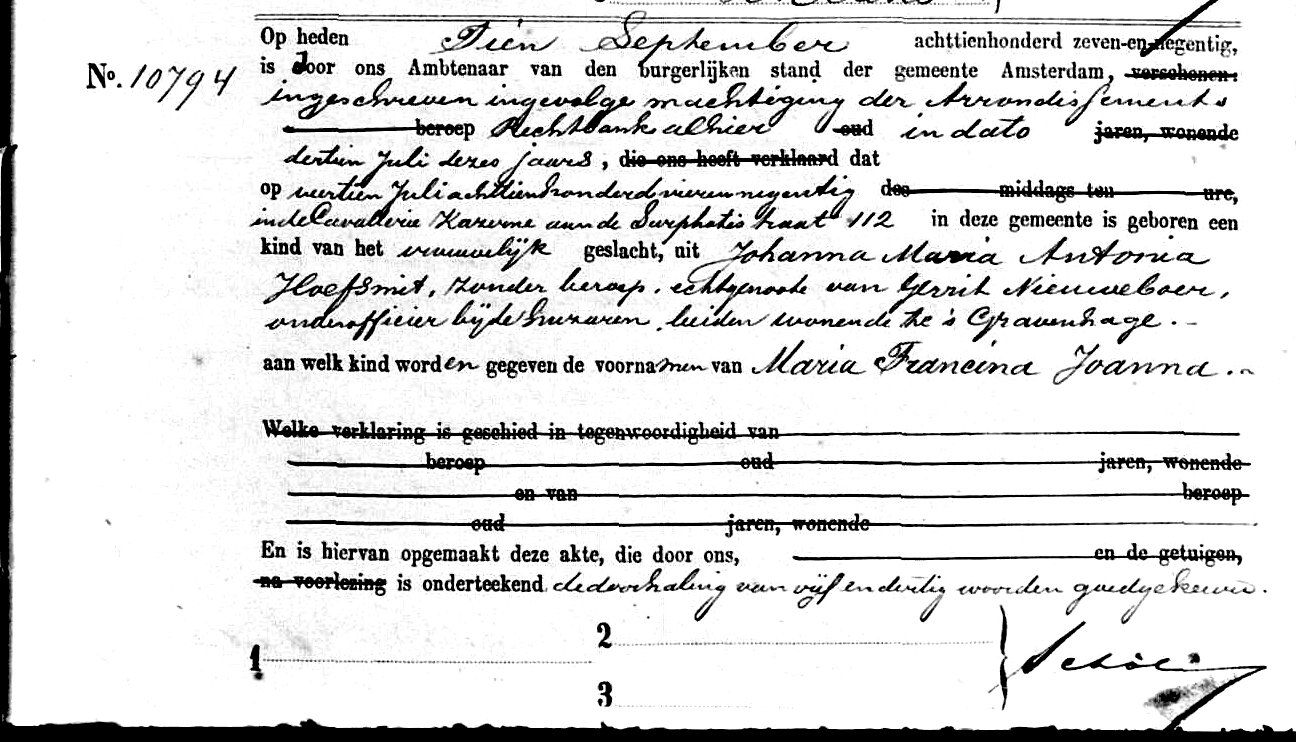 Op heden Tien September achttienhonderd zeven-en-negentig,
No. 10794
is door ons Ambtenaar van den burgerlijken stand der gemeente Amsterdam, verschenen:
ingeschreven ingevolge machtiging der Arrondissements
beroep Rechtbank alhier oud in dato jaren, wonende
dertien Juli dezes jaars, die ons heeft verklaard dat
op veertien Juli achttienhonderd vierennegentig des middags ten ure,
in de Cavallerie Kazerne aan de Sarphatistraat 112 in deze gemeente is geboren een
kind van het vrouwelijk geslacht, uit Johanna Maria Antonia
Hoefsmit, zonder beroep, echtgenoote van Gerrit Nieuweboer,
onderofficier bij de huzaren, beiden wonende te 's Gravenhage.
aan welk kind worden gegeven de voornamen van Maria Francina Joanna.
Welke verklaring is geschied in tegenwoordigheid van
beroep oud jaren, wonende
en van beroep
oud jaren, wonende
En is hiervan opgemaakt deze akte, die door ons, en de getuigen,
na voorlezing is onderteekend de doorhaling van vijf en dertig woorden goedgekeurd.
1
2
3